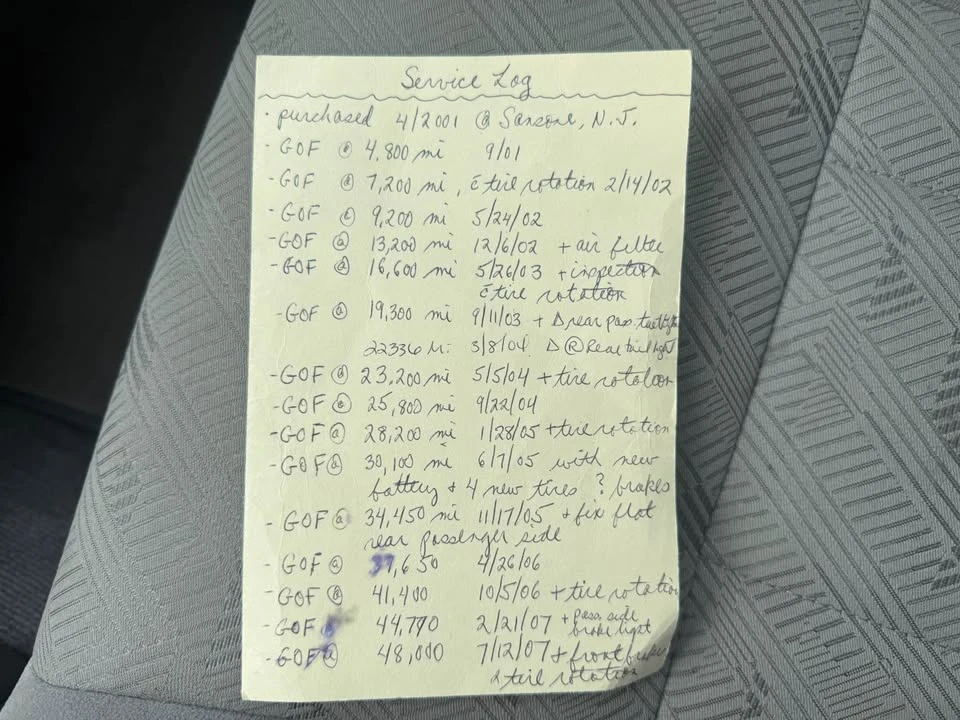 Service Log
· purchased 4/2001 @ Sansone, N.J.
- GOF @ 4,800 mi 9/01
- GOF @ 7,200 mi, c̄ tire rotation 2/14/02
- GOF @ 9,200 mi 5/24/02
- GOF @ 13,200 mi 12/6/02 + air filter
- GOF @ 16,600 mi 5/26/03 + inspection
c̄ tire rotation
- GOF @ 19,300 mi 9/11/03 + Δ rear pass. tail light
22336 Mi 3/8/04 Δ Ⓡ Rear tail light
- GOF @ 23,200 mi 5/5/04 + tire rotation
- GOF @ 25,800 mi 9/22/04
- GOF @ 28,200 mi 1/28/05 + tire rotation
- GOF @ 30,100 mi 6/7/05 with new
battery + 4 new tires ? brakes
- GOF @ 34,450 mi 11/17/05 + fix flat
rear passenger side
- GOF @ 37,650 4/26/06
- GOF @ 41,400 10/5/06 + tire rotation
- GOF @ 44,770 2/21/07 + pass. side
brake light
- GOF @ 48,000 7/12/07 + front brakes
& tire rotation